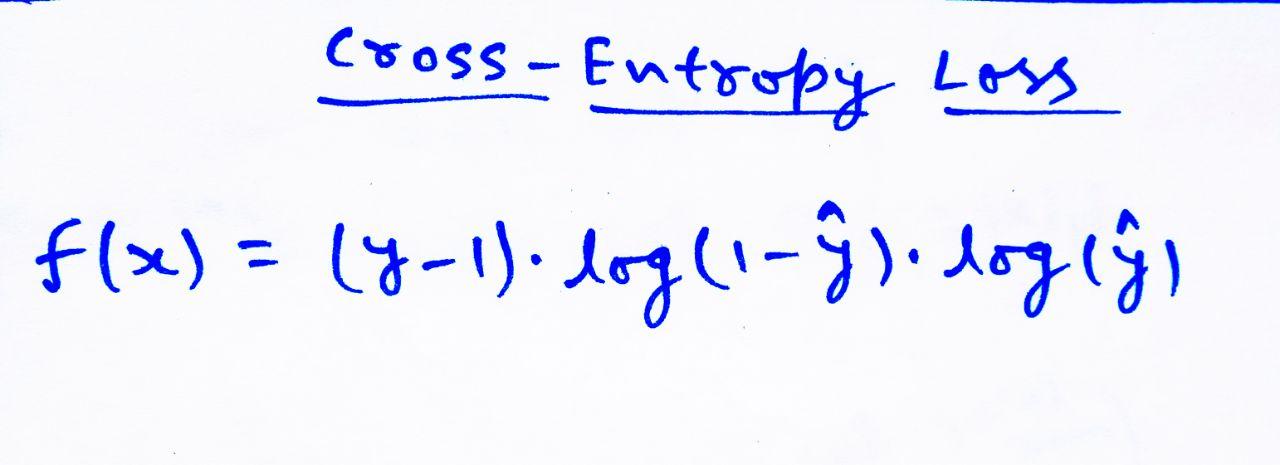 Cross-Entropy Loss
f(x) = (y-1)·log(1-ŷ)·log(ŷ)